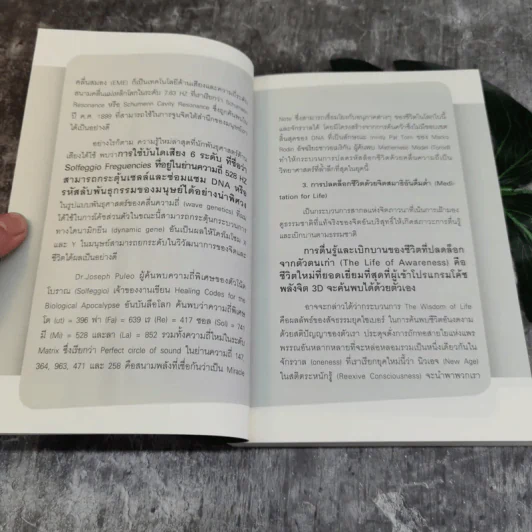 คลื่นสมอง (EME) ก็เป็นเทคโนโลยีด้านเสียงและความถี่บนคลื่น
สนามคลื่นแม่เหล็กโลกในระดับ 7.83 HZ ที่เราเรียกว่า Schumann
Resonance หรือ Schumann Cavity Resonance ซึ่งถูกค้นพบใน
ปี ค.ศ. 1899 ที่สามารถใช้ในการจูนจิตใต้สำนึกของมนุษย์
ได้เป็นอย่างดี
อย่างไรก็ตาม ความรู้ใหม่ล่าสุดที่นักพันธุศาสตร์ด้าน
เสียงได้ใช้ พบว่าการใช้บันไดเสียง 6 ระดับ ที่ชื่อว่า
Solfeggio Freguencies ที่อยู่ในย่านความถี่ 528 HZ
สามารถกระตุ้นเซลล์และซ่อมแซม DNA หรือ
รหัสลับพันธุกรรมของมนุษย์ได้อย่างน่าพิศวง
ในรูปแบบพันธุศาสตร์ของคลื่นความถี่ (wave genetics) ที่
ได้ใช้ในการโค้ชส่วนตัวในขณะนี้สามารถกระตุ้นกระบวนการ
ทางไดนามิกยีน (dynamic gene) อันเป็นผลให้โครโมโซม
และ Y ในมนุษย์สามารถยกระดับในวิวัฒนาการของจิตและ
ชีวิตได้ผลเป็นอย่างดี
Dr.Joseph Puleo ผู้ค้นพบความถี่พิเศษของตัวโน้ต
โบราณ (Solfeggio) เจ้าของงานเขียน Healing Codes for the
Biological Apocalypse อันบันลือโลก ค้นพบว่าความถี่พิเศษ
โด (ut) = 396 ฟา (Fa) = 639 เร (Re) = 417 ซอล (Sol) = 741
มี (Mi) = 528 และลา (La) = 852 รวมทั้งความถี่ใหม่ในระดับ
Matrix ซึ่งเรียกว่า Perfect circle of sound ในย่านความถี่ 147,
364, 963, 471 และ 258 คือสนามพลังที่เชื่อกันว่าเป็น Miracle
Note ซึ่งสามารถเชื่อมโยงกับทุกภาคส่วนต่างๆ ของชีวิตในโลกใบนี้
และจักรวาลได้
Rodin
ทำให้กระบวนการปลดรหัสล็อกชีวิตด้วยคลื่นความถี่เป็น
วิทยาศาสตร์ที่ล้ำลึกที่สุดในยุคนี้
3. การปลดล็อกชีวิตด้วยจิตสมาธิอันดื่มด่ำ (Medi-
tation for Life)
เป็นกระบวนการสากลแห่งจิตภาวนาที่เน้นการเฝ้ามอง
สู่ธรรมชาติอันแท้จริงของจิตอันบริสุทธิ์ให้เกิดสภาวะการตื่นรู้
และเบิกบานตามธรรมชาติ
การตื่นรู้และเบิกบานของชีวิตที่ปลดล็อก
จากตัวตนเก่า (The Life of Awareness) คือ
ชีวิตใหม่ที่ยอดเยี่ยมที่สุดที่ผู้เข้าโปรแกรมโค้ช
พลังจิต 3D จะค้นพบได้ด้วยตัวเอง
อาจจะกล่าวได้ว่ากระบวนการ The Wisdom of Life
คือผลลัพธ์ของสัจธรรมยุคไซเบอร์ ในการค้นพบชีวิตอันงดงาม
ด้วยสติปัญญาของตัวเรา ประดุจดั่งการถักทอสายใยแห่งแพร
พรรณอันหลากหลายที่จะหล่อหลอมรวมเป็นหนึ่งเดียวกันใน
จักรวาล (oneness) ที่เราเรียกยุคใหม่นี้ว่า นิวเอจ (New Age)
ในสติตระหนักรู้ (Reexive Consciousness) จะนำพาพวกเรา